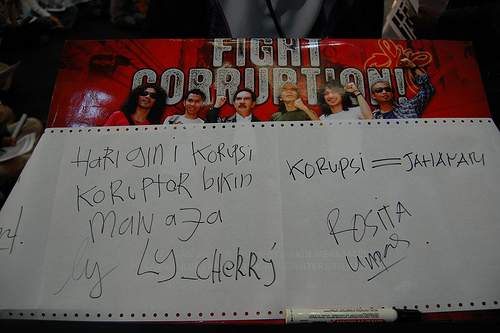 FIGHT
CORRUPTION!
HARI gini KORUPSi
KORUPTOR bikin
MALU AJA
by LY_CHERRY
KORUPSI = JAHANAM
ROSITA